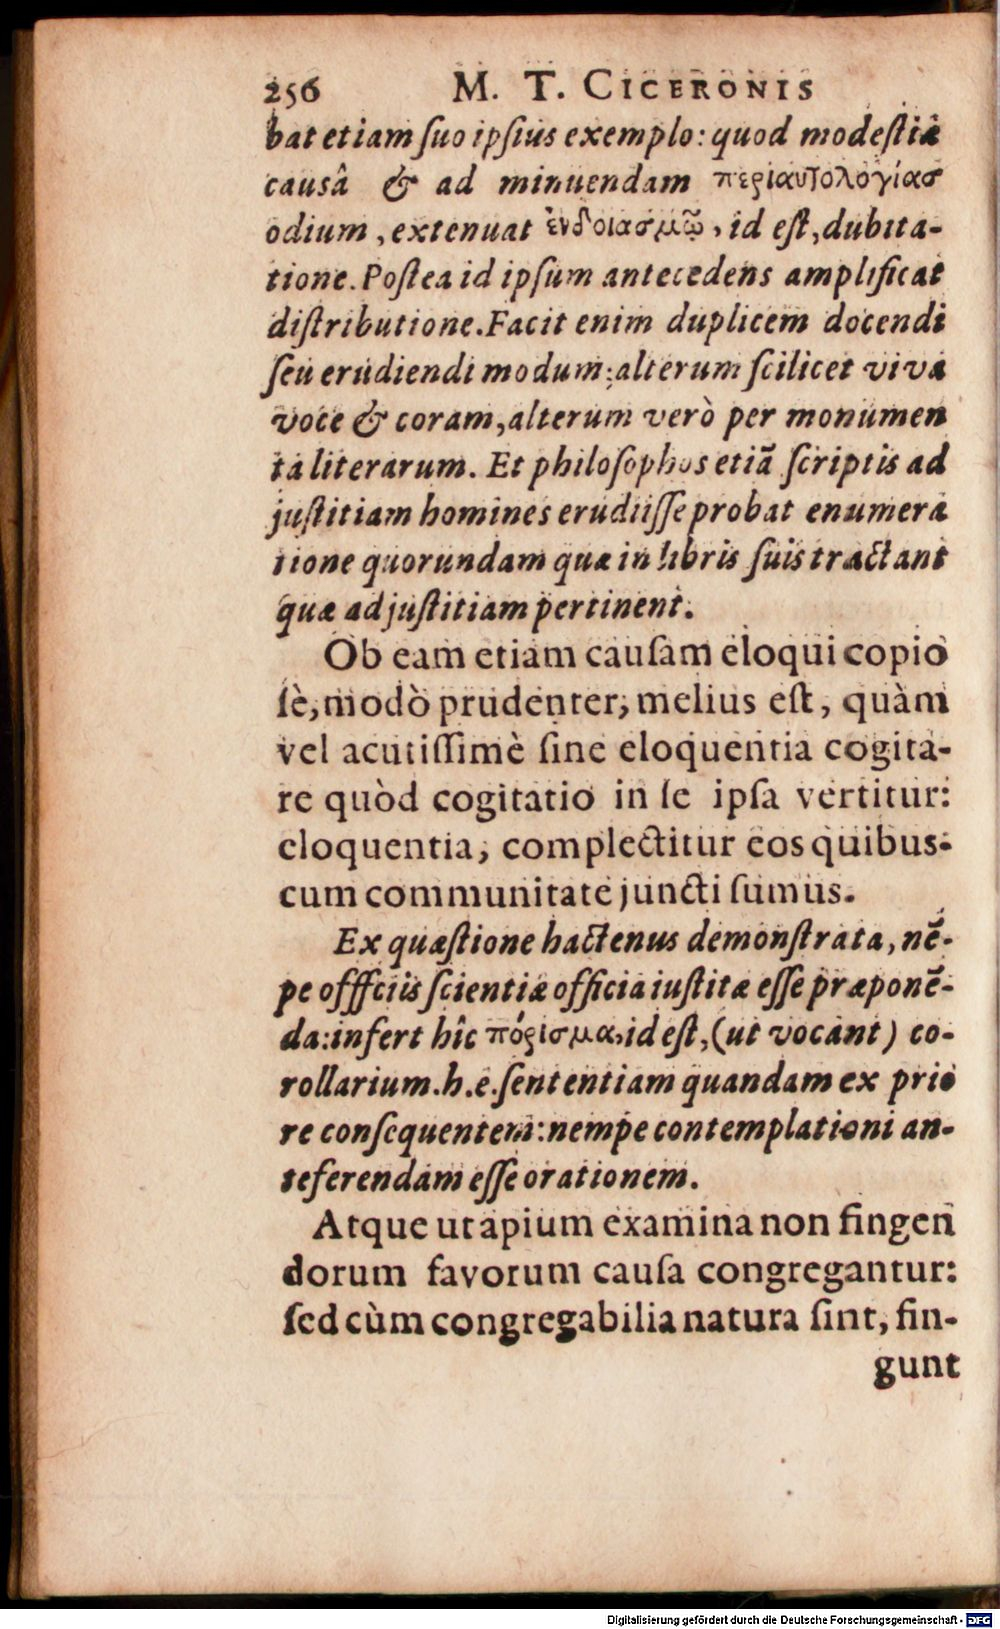 256 M. T. CICERONIS
bat etiam ſuo ipſius exemplo: quod modeſtiæ
causâ & ad minuendam περιαυτολογίασ
odium, extenuat ἐνδοιασμῷ, id eſt, dubita-
tione. Poſtea id ipſum antecedens amplificat
diſtributione. Facit enim duplicem docendi
ſeu erudiendi modum: alterum ſcilicet viva
voce & coram, alterum verò per monumen
ta literarum. Et philoſophos etiã ſcriptis ad
juſtitiam homines erudiiſſe probat enumera
tione quorundam quæ in libris ſuis tractant
quæ ad juſtitiam pertinent.
Ob eam etiam cauſam eloqui copio
ſè, modò prudenter, melius eſt, quàm
vel acutiſſimè ſine eloquentia cogita-
re quòd cogitatio in ſe ipſa vertitur:
eloquentia, complectitur eos quibus-
cum communitate juncti ſumus.
Ex quæſtione hactenus demonſtrata, nẽ-
pe offfciis ſcientiæ officia iuſtitæ eſſe præponẽ-
da: infert hîc πόρισμα, id eſt, (ut vocant) co-
rollarium. h. e. ſententiam quandam ex prio
re conſequentem: nempe contemplationi an-
teferendam eſſe orationem.
Atque ut apium examina non fingen
dorum favorum cauſa congregantur:
ſed cùm congregabilia natura ſint, fin-
gunt
Digitalisierung gefördert durch die Deutsche Forschungsgemeinschaft - DFG